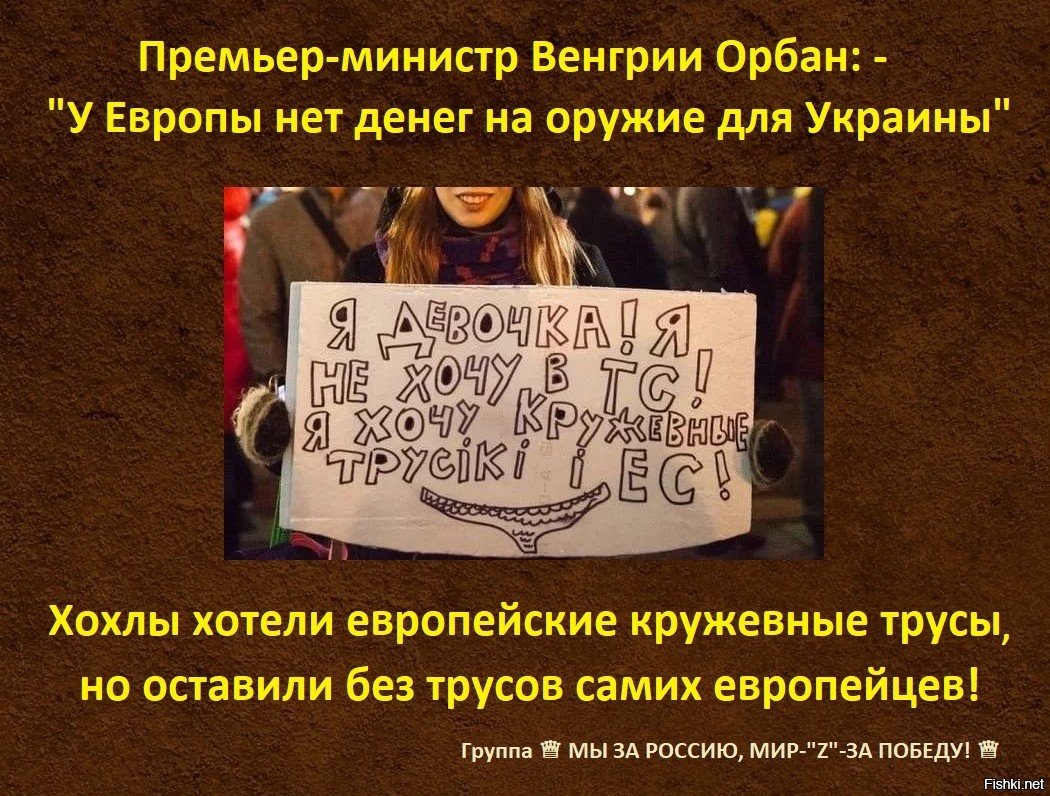 Премьер-министр Венгрии Орбан: -
"У Европы нет денег на оружие для Украины"
Я ДЕВОЧКА! Я
НЕ ХОЧУ В ТС!
Я ХОЧУ КРУЖЕВНЫЕ
ТРУСІКІ І ЕС!
Хохлы хотели европейские кружевные трусы,
но оставили без трусов самих европейцев!
Группа ♕ МЫ ЗА РОССИЮ, МИР-"Z"-ЗА ПОБЕДУ! ♕
Fishki.net